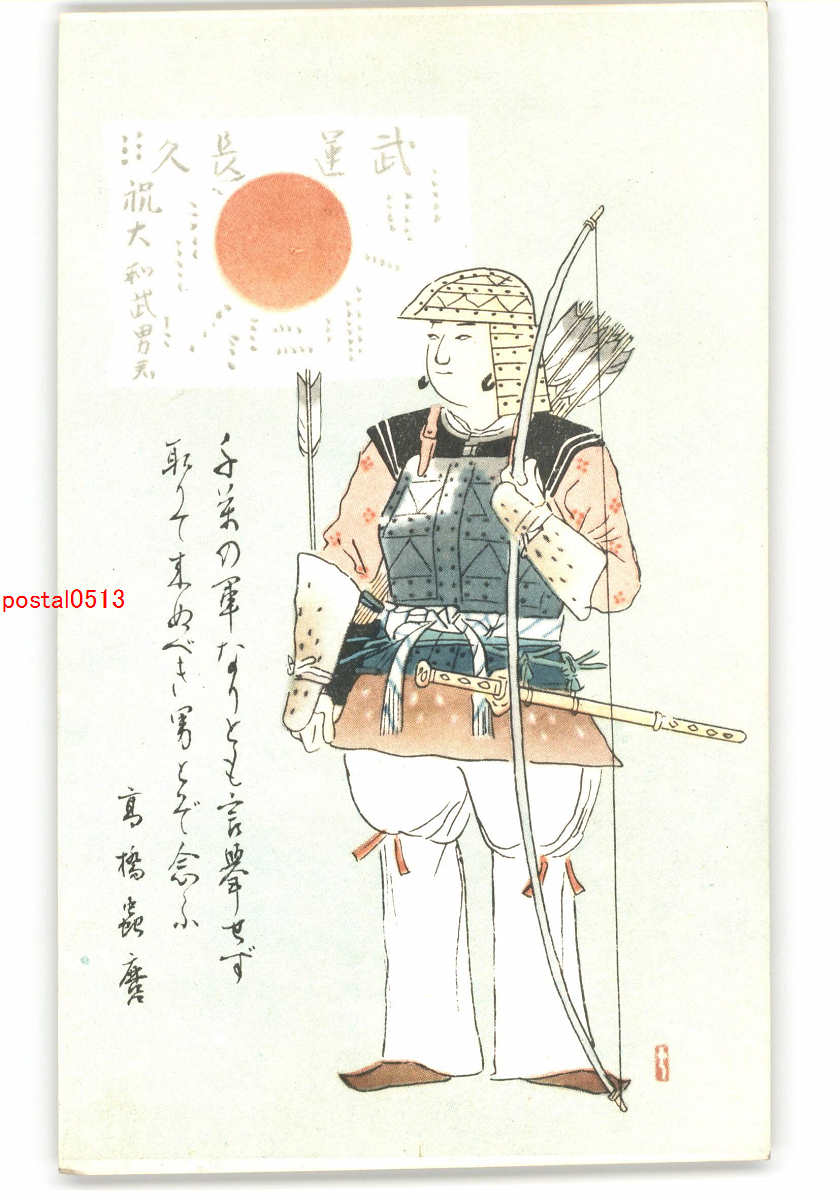 武運長久
祝大和武男君
千萬の軍なりとも言擧せず
取りて来ぬべき男とぞ念ふ
高橋蟲麿
postal0513